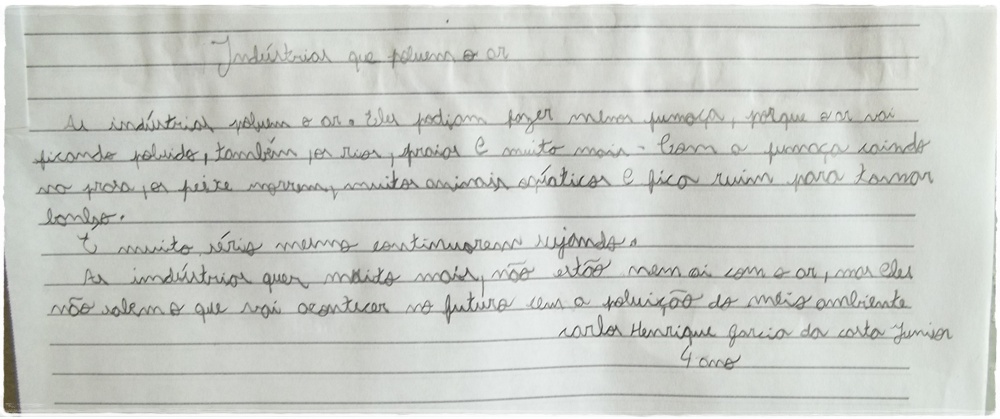 Indústrias que poluem o ar
As indústrias poluem o ar. Eles podiam fazer menos fumaça, porque o ar vai
ficando poluido, também, os rios, praias e muito mais. Com a fumaça caindo
na praia, os peixe morrem, muitos animais aquáticos e fica ruim para tomar
banho.
É muito sério mesmo continuarem sujando.
As indústrias quer muito mais, não estão nem ai com o ar, mas eles
não sabem o que vai acontecer no futuro com a poluição do meio ambiente
Carlos Henrique Garcia da Costa Junior
4 ano